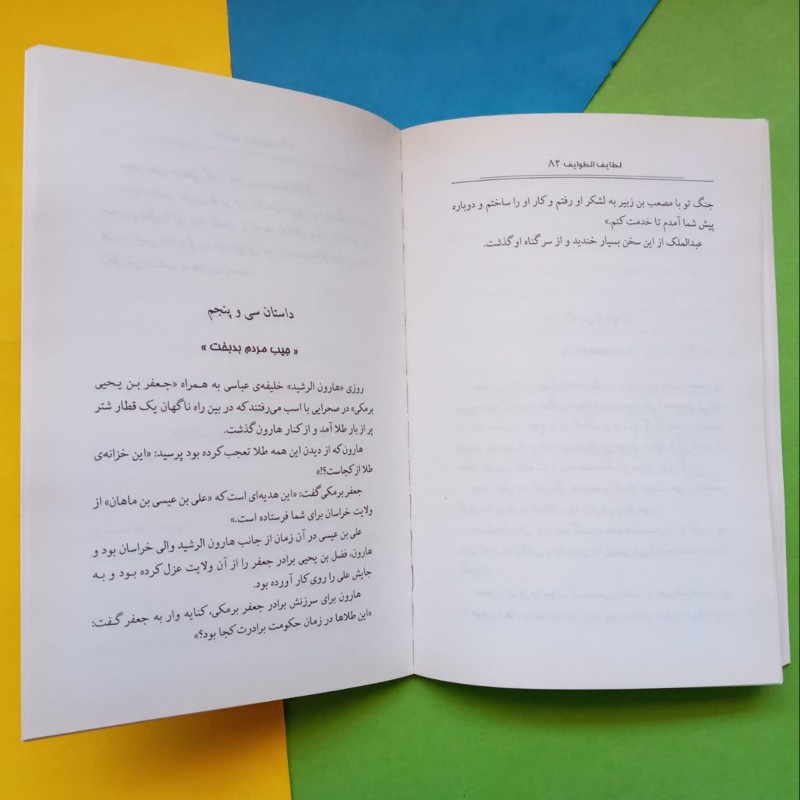 لطایف الطوایف ۸۲
جنگ تو با مصعب بن زبیر به لشکر او رفتم و کار او را ساختم و دوباره
پیش شما آمدم تا خدمت کنم.»
عبدالملک از این سخن بسیار خندید و از سر گناه او گذشت.
داستان سی و پنجم
« جیب مردم بدبخت »
روزی «هارون الرشید» خلیفه‌ی عباسی به همراه «جعفر بن یحیی
برمکی» در صحرایی با اسب می‌رفتند که در بین راه ناگهان یک قطار شتر
پر از بار طلا آمد و از کنار هارون گذشت.
هارون که از دیدن این همه طلا تعجب کرده بود پرسید: «این خزانه‌ی
طلا از کجاست؟!»
جعفر برمکی گفت: «این هدیه‌ای است که «علی بن عیسی بن ماهان» از
ولایت خراسان برای شما فرستاده است.»
علی بن عیسی در آن زمان از جانب هارون الرشید والی خراسان بود و
هارون، فضل بن یحیی برادر جعفر را از آن ولایت عزل کرده بود و به
جایش علی را روی کار آورده بود.
هارون برای سرزنش برادر جعفر برمکی، کنایه وار به جعفر گفت:
«این طلاها در زمان حکومت برادرت کجا بود؟»